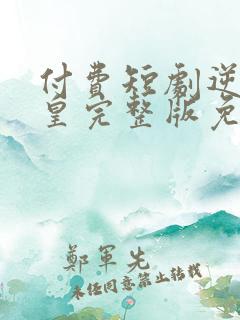 付費短劇逆
皇完整版免
鄭軍先
未任同意禁止转载